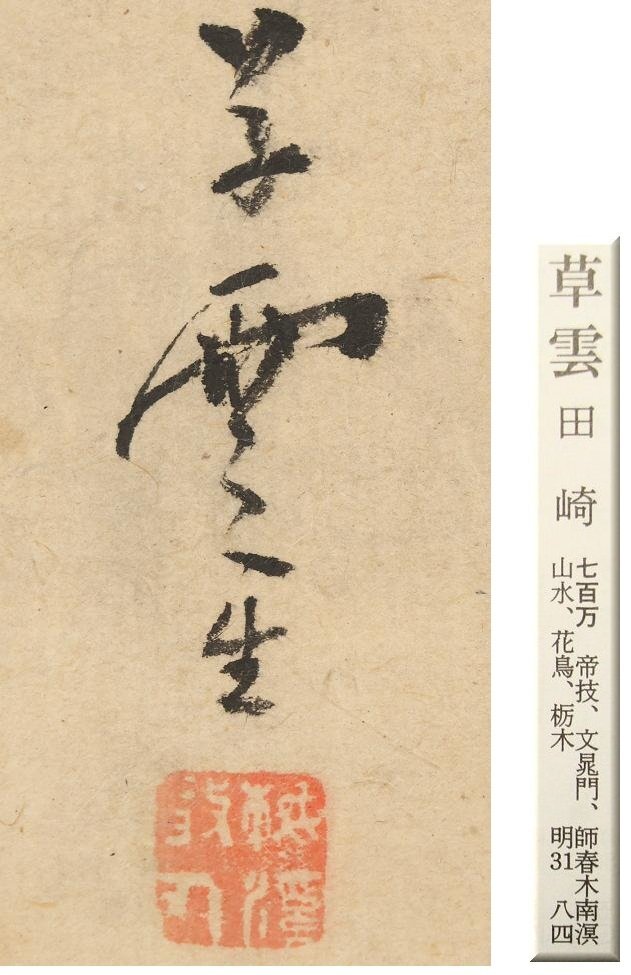 草雲生
草雲 田崎
七百万 帝技、文晁門、師春木南溟
山水、花鳥、栃木 明31 八四